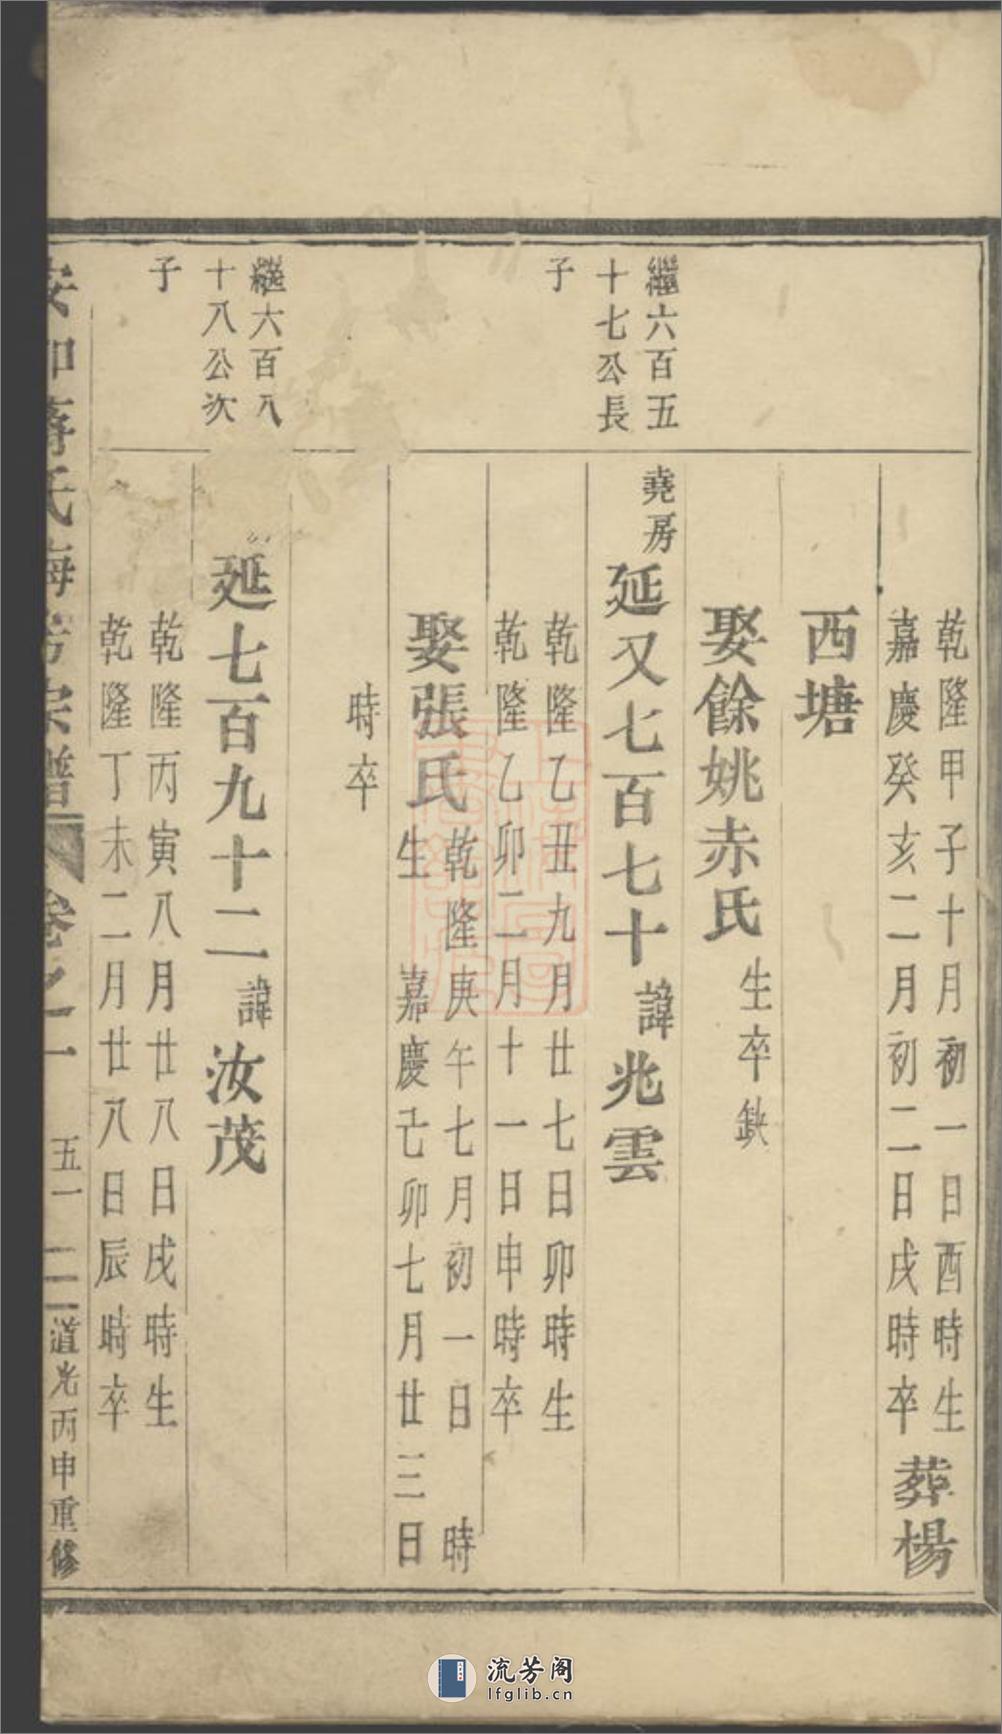 乾隆甲子十月初一日酉時生
嘉慶癸亥二月初二日戌時卒
葬楊
西塘
娶餘姚赤氏
生卒缺
繼六百五
十七公長
子
堯房
延又七百七十
諱
兆雲
乾隆乙丑九月廿七日卯時生
乾隆乙卯二月十一日申時卒
娶張氏
乾隆庚午七月初一日 時
生 嘉慶己卯七月廿三日
時卒
繼六百八
十八公次
子
延七百九十二
諱
汝茂
乾隆丙寅八月廿八日戌時生
乾隆丁未二月廿八日辰時卒
氏
宗譜
卷之一
五一
道光丙申重修
流芳阁
lfglib.cn